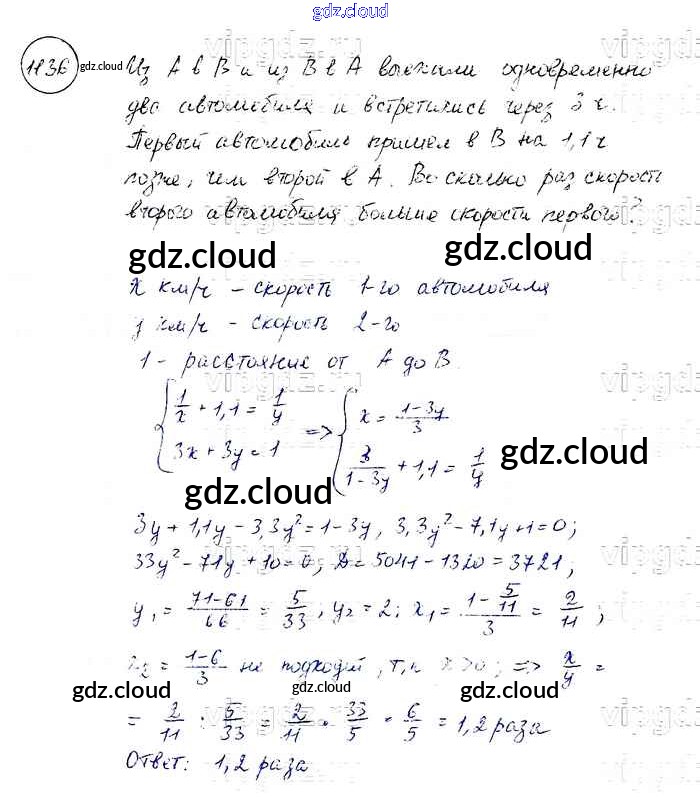 gdz.cloud
1136 gdz.cloud Из А в В и из В в А выехали одновременно
два автомобиля и встретились через 3 ч.
Первый автомобиль пришел в В на 1,1 ч
позже, чем второй в А. Во сколько раз скорость
второго автомобиля больше скорости первого?
gdz.cloud gdz.cloud
x км/ч - скорость 1-го автомобиля
y км/ч - скорость 2-го
1 - расстояние от А до В.
{ 1/x + 1,1 = 1/y
3x + 3y = 1
=> { x = (1-3y)/3
3/(1-3y) + 1,1 = 1/y
gdz.cloud gdz.cloud
3y + 1,1y - 3,3y² = 1 - 3y, 3,3y² - 7,1y + 1 = 0;
33y² - 71y + 10 = 0; D = 5041 - 1320 = 3721,
y₁ = (71-61)/66 = 5/33, y₂ = 2; x₁ = (1 - 5/11)/3 = 2/11;
x₂ = (1-6)/3 не подходит, т.к x>0; => x/y =
gdz.cloud gdz.cloud gdz.cloud
= 2/11 : 5/33 = 2/11 · 33/5 = 6/5 = 1,2 раза
Ответ: 1,2 раза
gdz.cloud